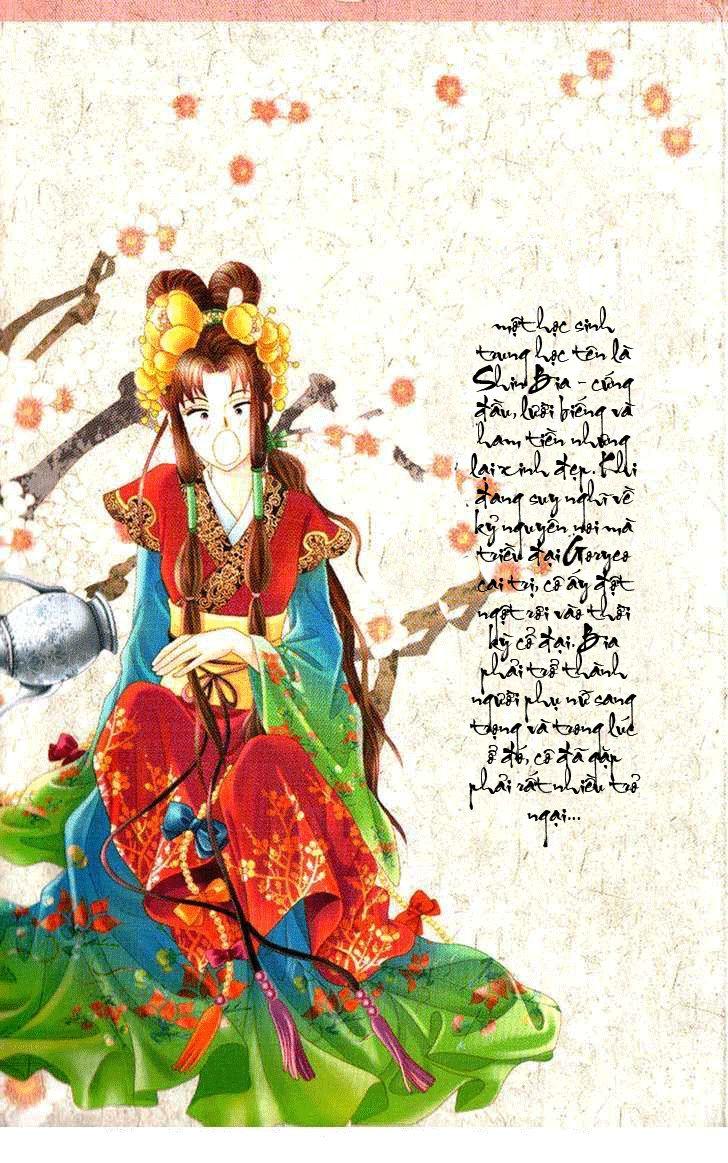 một học sinh
trung học tên là
Shin Bia - cứng
đầu, lười biếng và
ham tiền nhưng
lại xinh đẹp. Khi
đang suy nghĩ về
kỷ nguyên nơi mà
triều đại Goryeo
cai trị, cô ấy đột
ngột rơi vào thời
kỳ cổ đại. Bia
phải trở thành
người phụ nữ sang
trọng và trong lúc
ở đó, cô đã gặp
phải rất nhiều trở
ngại...